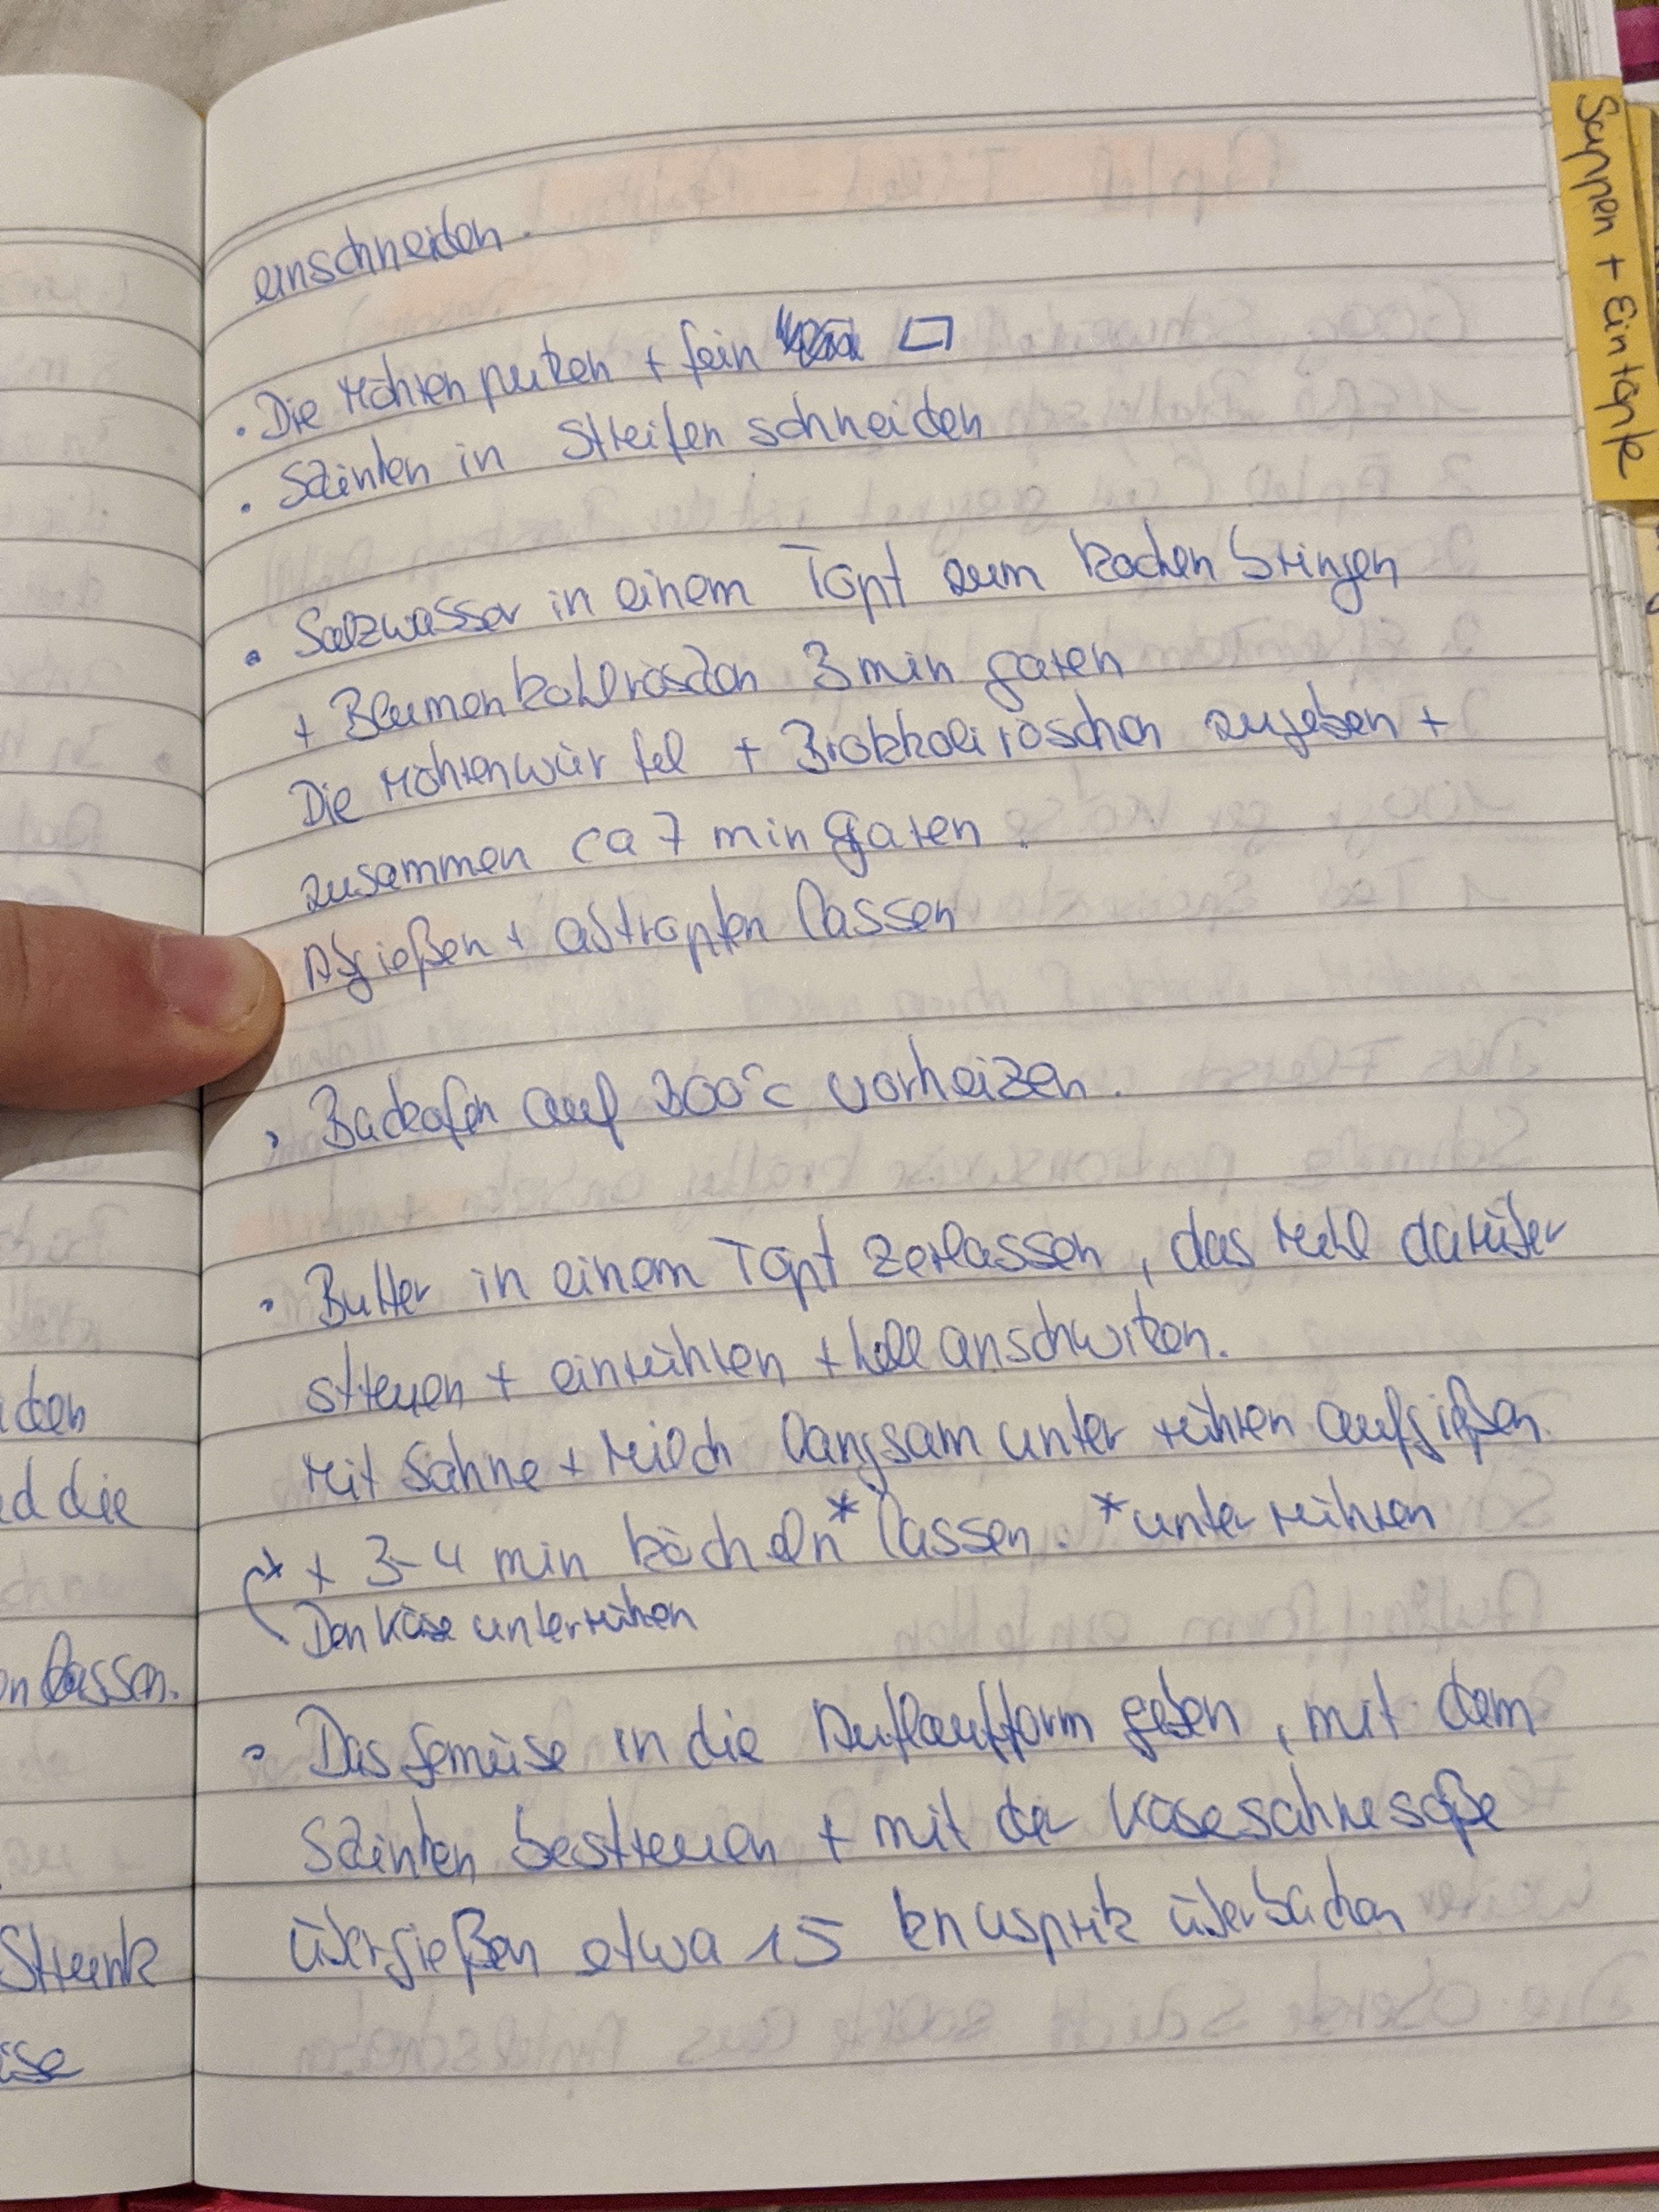 einschneiden.
• Die Möhren putzen + fein □
• Schinken in Streifen schneiden
• Salzwasser in einem Topf zum kochen bringen
+ Blumenkohlröschen 3 min garen
Die Möhrenwürfel + Brokkoliröschen zugeben +
zusammen ca 7 min garen.
Abgießen + abtropfen lassen
• Backofen auf 200°C vorheizen.
• Butter in einem Topf zerlassen, das Mehl darüber
streuen + einrühren + hell anschwitzen.
Mit Sahne + Milch langsam unter rühren aufgießen.
* + 3-4 min köcheln* lassen. *unter rühren
Den Käse unterrühren
• Das Gemüse in die Auflaufform geben, mit dem
Schinken bestreuen + mit der Käsesahnesoße
übergießen etwa 15 knusprik überbacken
Suppen + Eintöpfe
den
d die
lassen.
Strunk